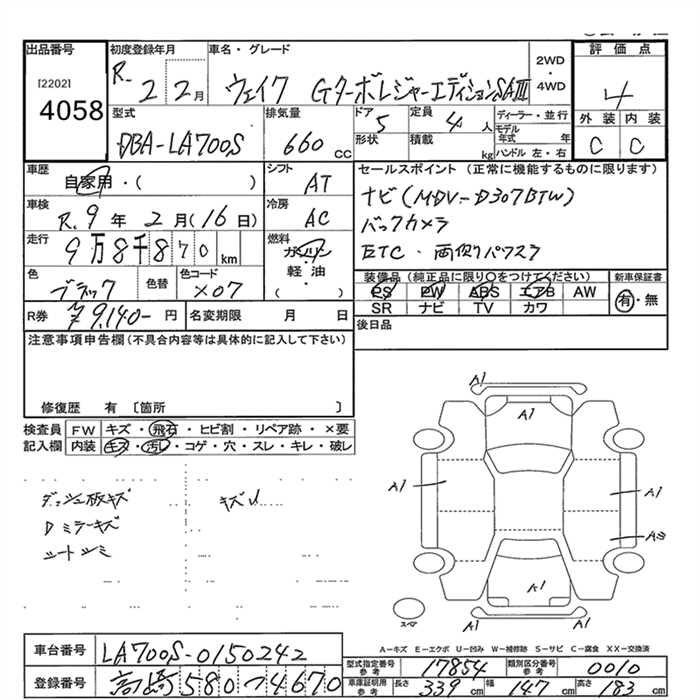 出品番号 初度登録年月 車名・グレード 2WD・4WD 評価点
[2202] R. 2 2月 ウェイク GターボレジャーエディションSAⅢ 4
4058
型式 排気量 ドア 定員 ディーラー・並行 外装 内装
DBA-LA700S 660 CC 5 4 人 モデル年式 年 C C
形状 積載 kg ハンドル 左・右
車歴 シフト セールスポイント (正常に機能するものに限ります)
自家用・( ) AT ナビ(MDV-D307BTW)
車検 冷房 バックカメラ
R. 9 年 2 月(16日) AC ETC・両側パワスラ
走行 燃料
9万8千870 km ガソリン
軽油
( )
色 色替 色コード 装備品(純正品に限り○をつけてください) 新車保証書
ブラック X07 PS PW ABS エアB AW 有・無
SR ナビ TV カワ
R券 ¥9,140- 円 名変期限 月 日 後日品
注意事項申告欄(不具合内容等は具体的に記入して下さい)
修復歴 有 〔箇所 〕
検査員 FW キズ・飛石・ヒビ割・リペア跡・×要
記入欄 内装 キズ・汚レ・コゲ・穴・スレ・キレ・破レ
ダッシュ板キズ キズU
Dミラーキズ
シートシミ
A1
A1
A1 A1
A3
A1
スペア A1
A-キズ E-エクボ U-凹み W-補修跡 S-サビ C-腐食 XX-交換済
車台番号 LA700S-0150242
型式指定番号 参考 17854 類別区分番号 参考 0010
登録番号 高崎 580 つ 4670
車庫証明用 参考 長さ 339 cm 幅 147 cm 高さ 183 cm